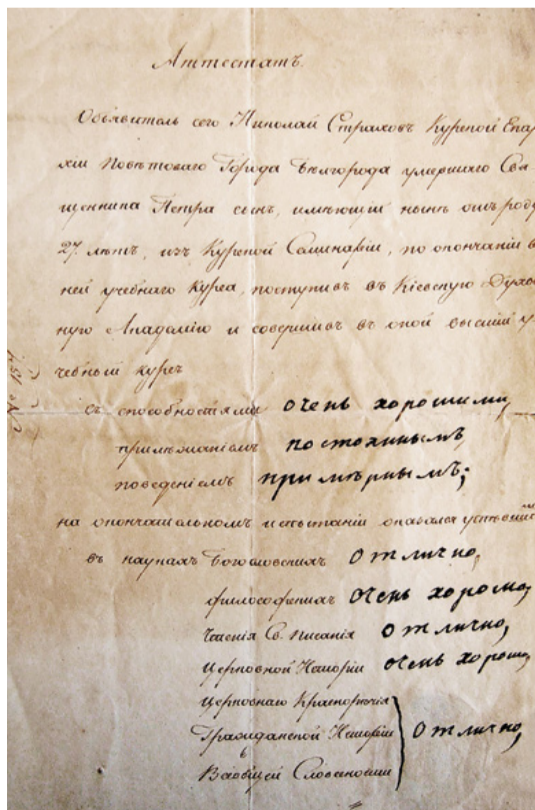 Аттестатъ.
Объявитель сего Николай Страховъ Курской Епар-
хіи Повѣтоваго Города Бѣлгорода умершаго Свя-
щенника Петра сынъ, имѣющій нынѣ отъ роду
27 лѣтъ, изъ Курской Семинаріи, по окончаніи въ
ней учебнаго курса, поступивъ въ Кіевскую Духов-
ную Академію и совершивъ въ оной высшій у-
чебный курсъ
съ способностями очень хорошими,
прилѣжаніемъ постояннымъ,
поведеніемъ примѣрнымъ;
на окончательномъ испытаніи оказался успѣвшимъ
въ наукахъ Богословскихъ отлично,
философскихъ очень хорошо,
Чтенія Св. Писанія отлично,
Церковной Исторіи очень хорошо,
Церковнаго Краснорѣчія
Гражданской Исторіи отлично,
и
Всеобщей Словесности
№ 157